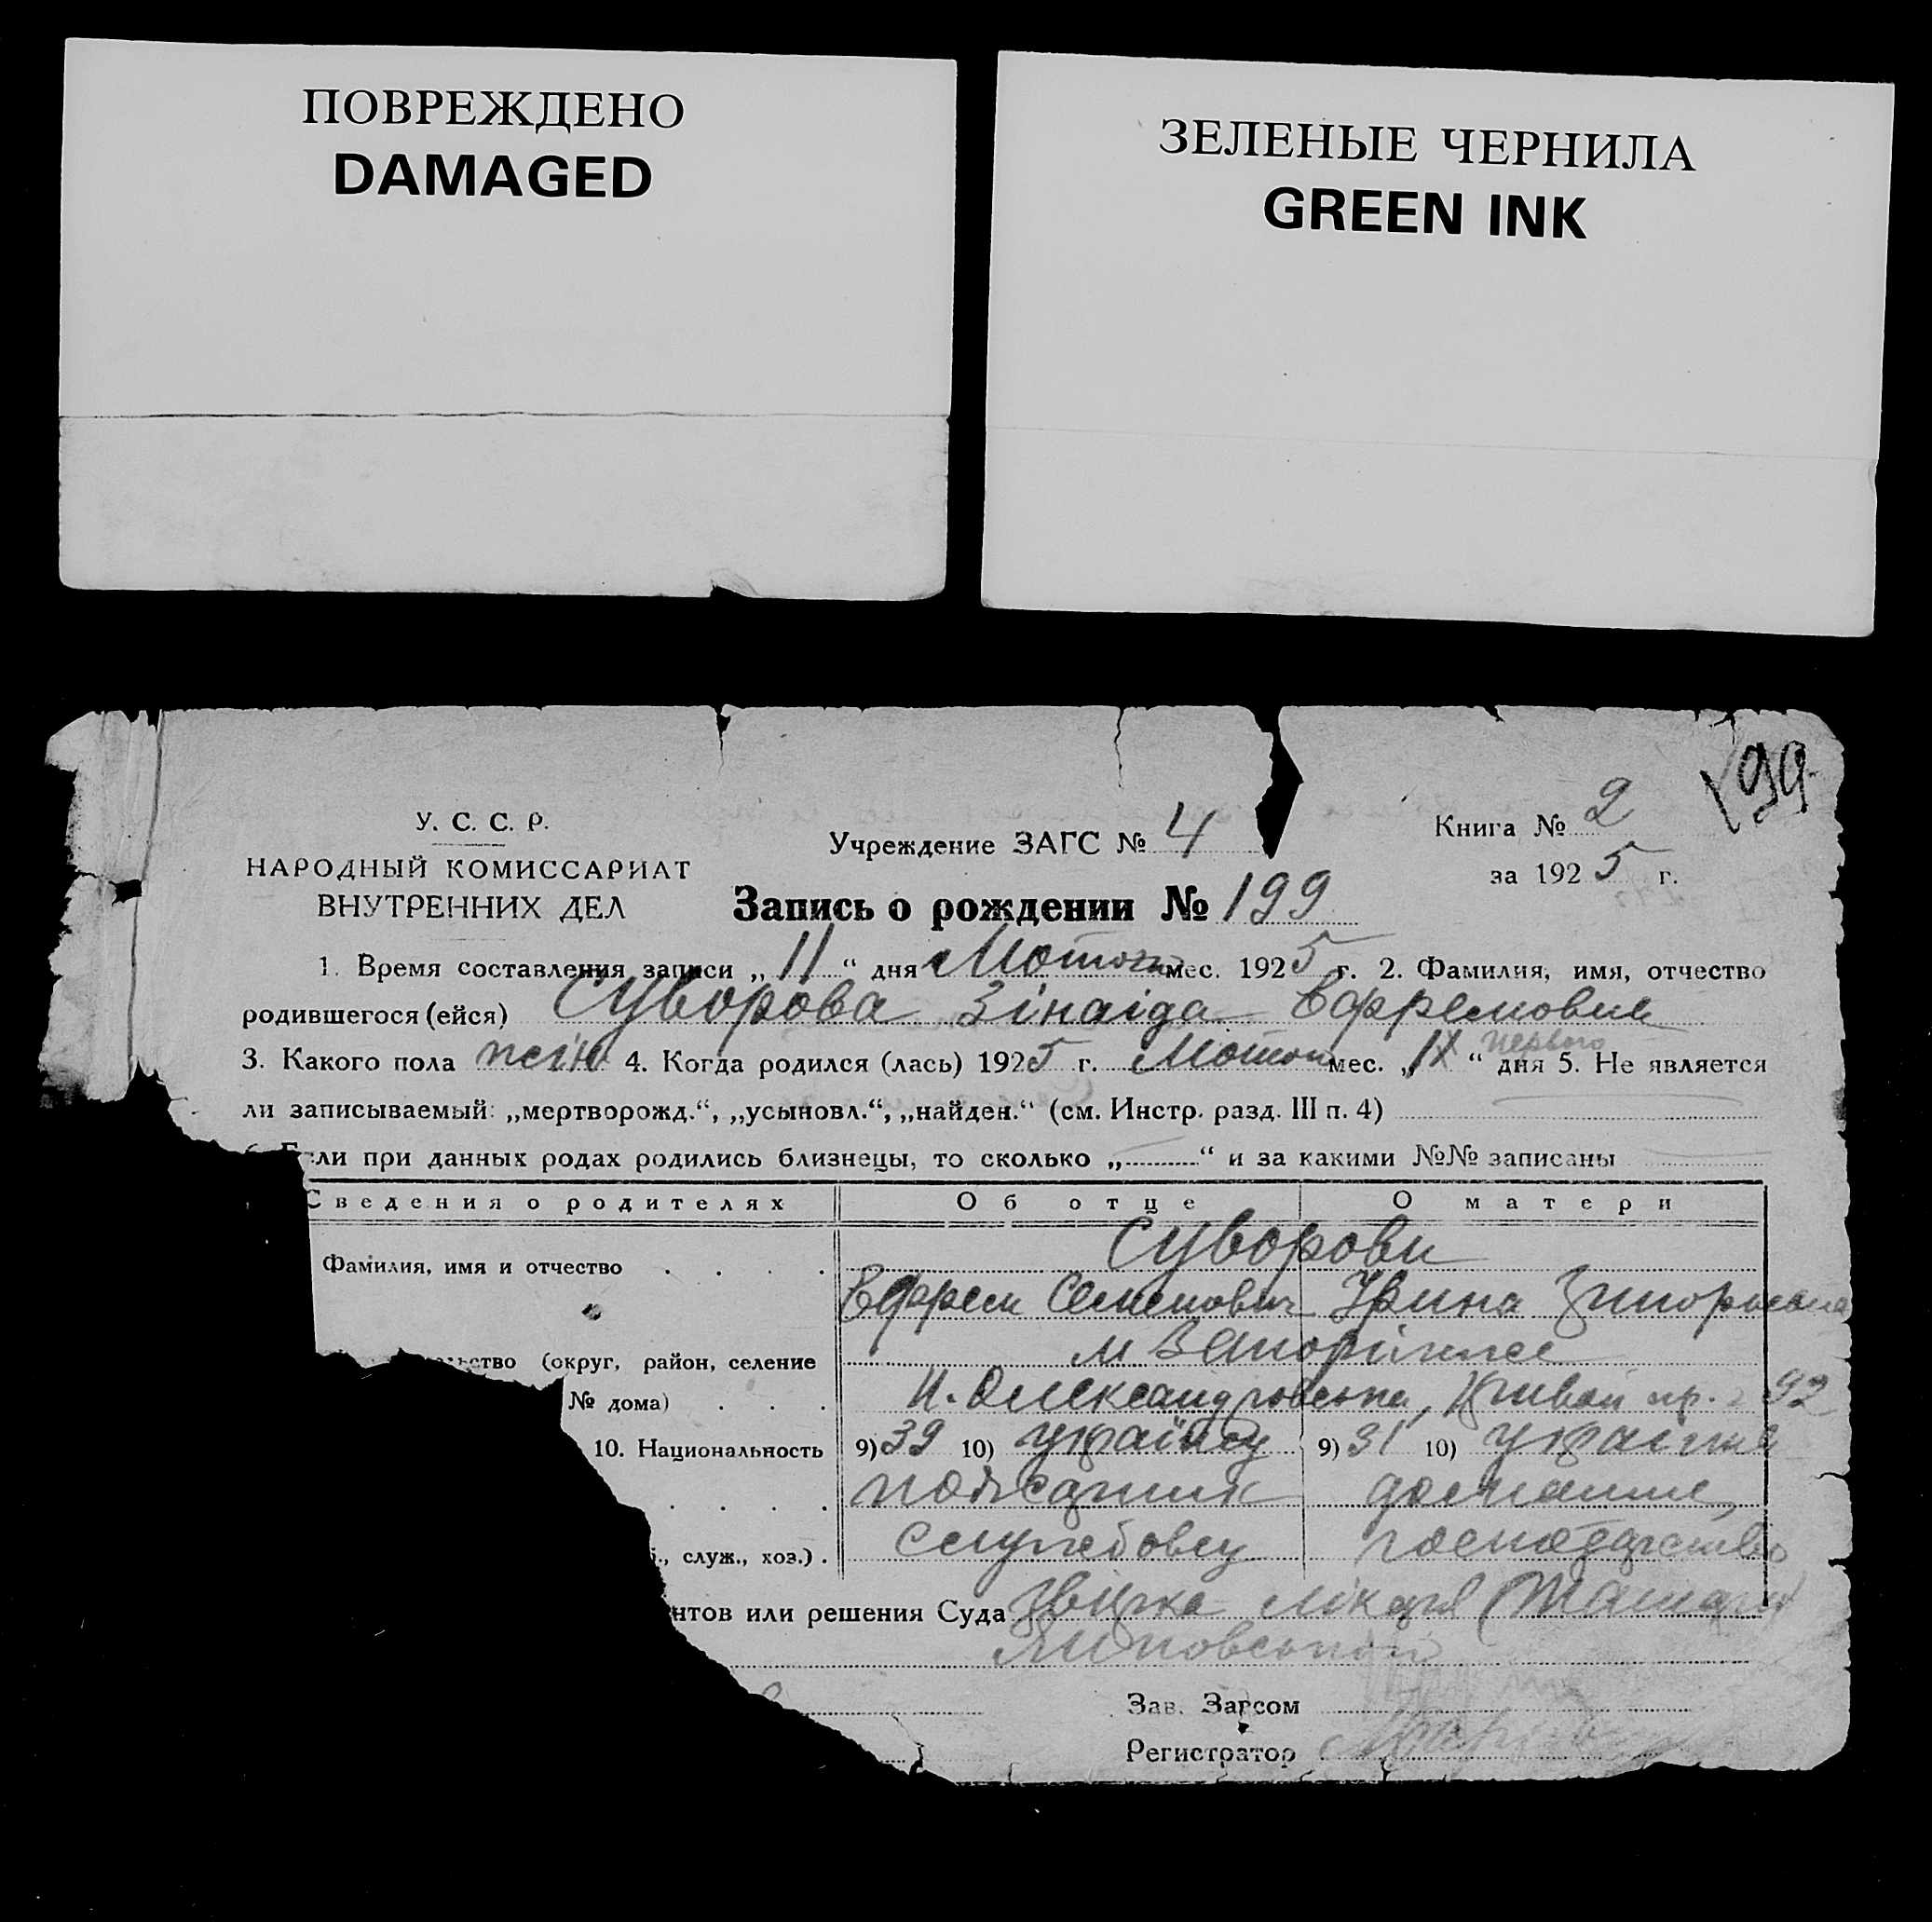 ПОВРЕЖДЕНО
DAMAGED
ЗЕЛЕНЫЕ ЧЕРНИЛА
GREEN INK
199
У. С. С. Р.
НАРОДНЫЙ КОМИССАРИАТ
ВНУТРЕННИХ ДЕЛ
Учреждение ЗАГС № 4
Книга № 2
за 1925 г.
Запись о рождении № 199
1. Время составления записи „11“ дня мес. 1925 г. 2. Фамилия, имя, отчество
родившегося (ейся) Суворова Зінаіда Ефремовна
3. Какого пола 4. Когда родился (лась) 1925 г. мес. „ первого “ дня 5. Не является
ли записываемый: „мертворожд.“, „усыновл.“, „найден.“ (см. Инстр. разд. III п. 4)
Если при данных родах родились близнецы, то сколько „ “ и за какими №№ записаны
Сведения о родителях Об отце О матери
Суворови
Фамилия, имя и отчество
Ефрем Семенович Ірина Григорьевна
м Запоріжже
(округ, район, селение
№ дома) 92
10. Национальность 9) 39 10) Українец 9) 31 10) Українка
домашнє
служ., хоз.) . службовец господарство
или решения Суда лікаря
Зав. Загсом
Регистратор